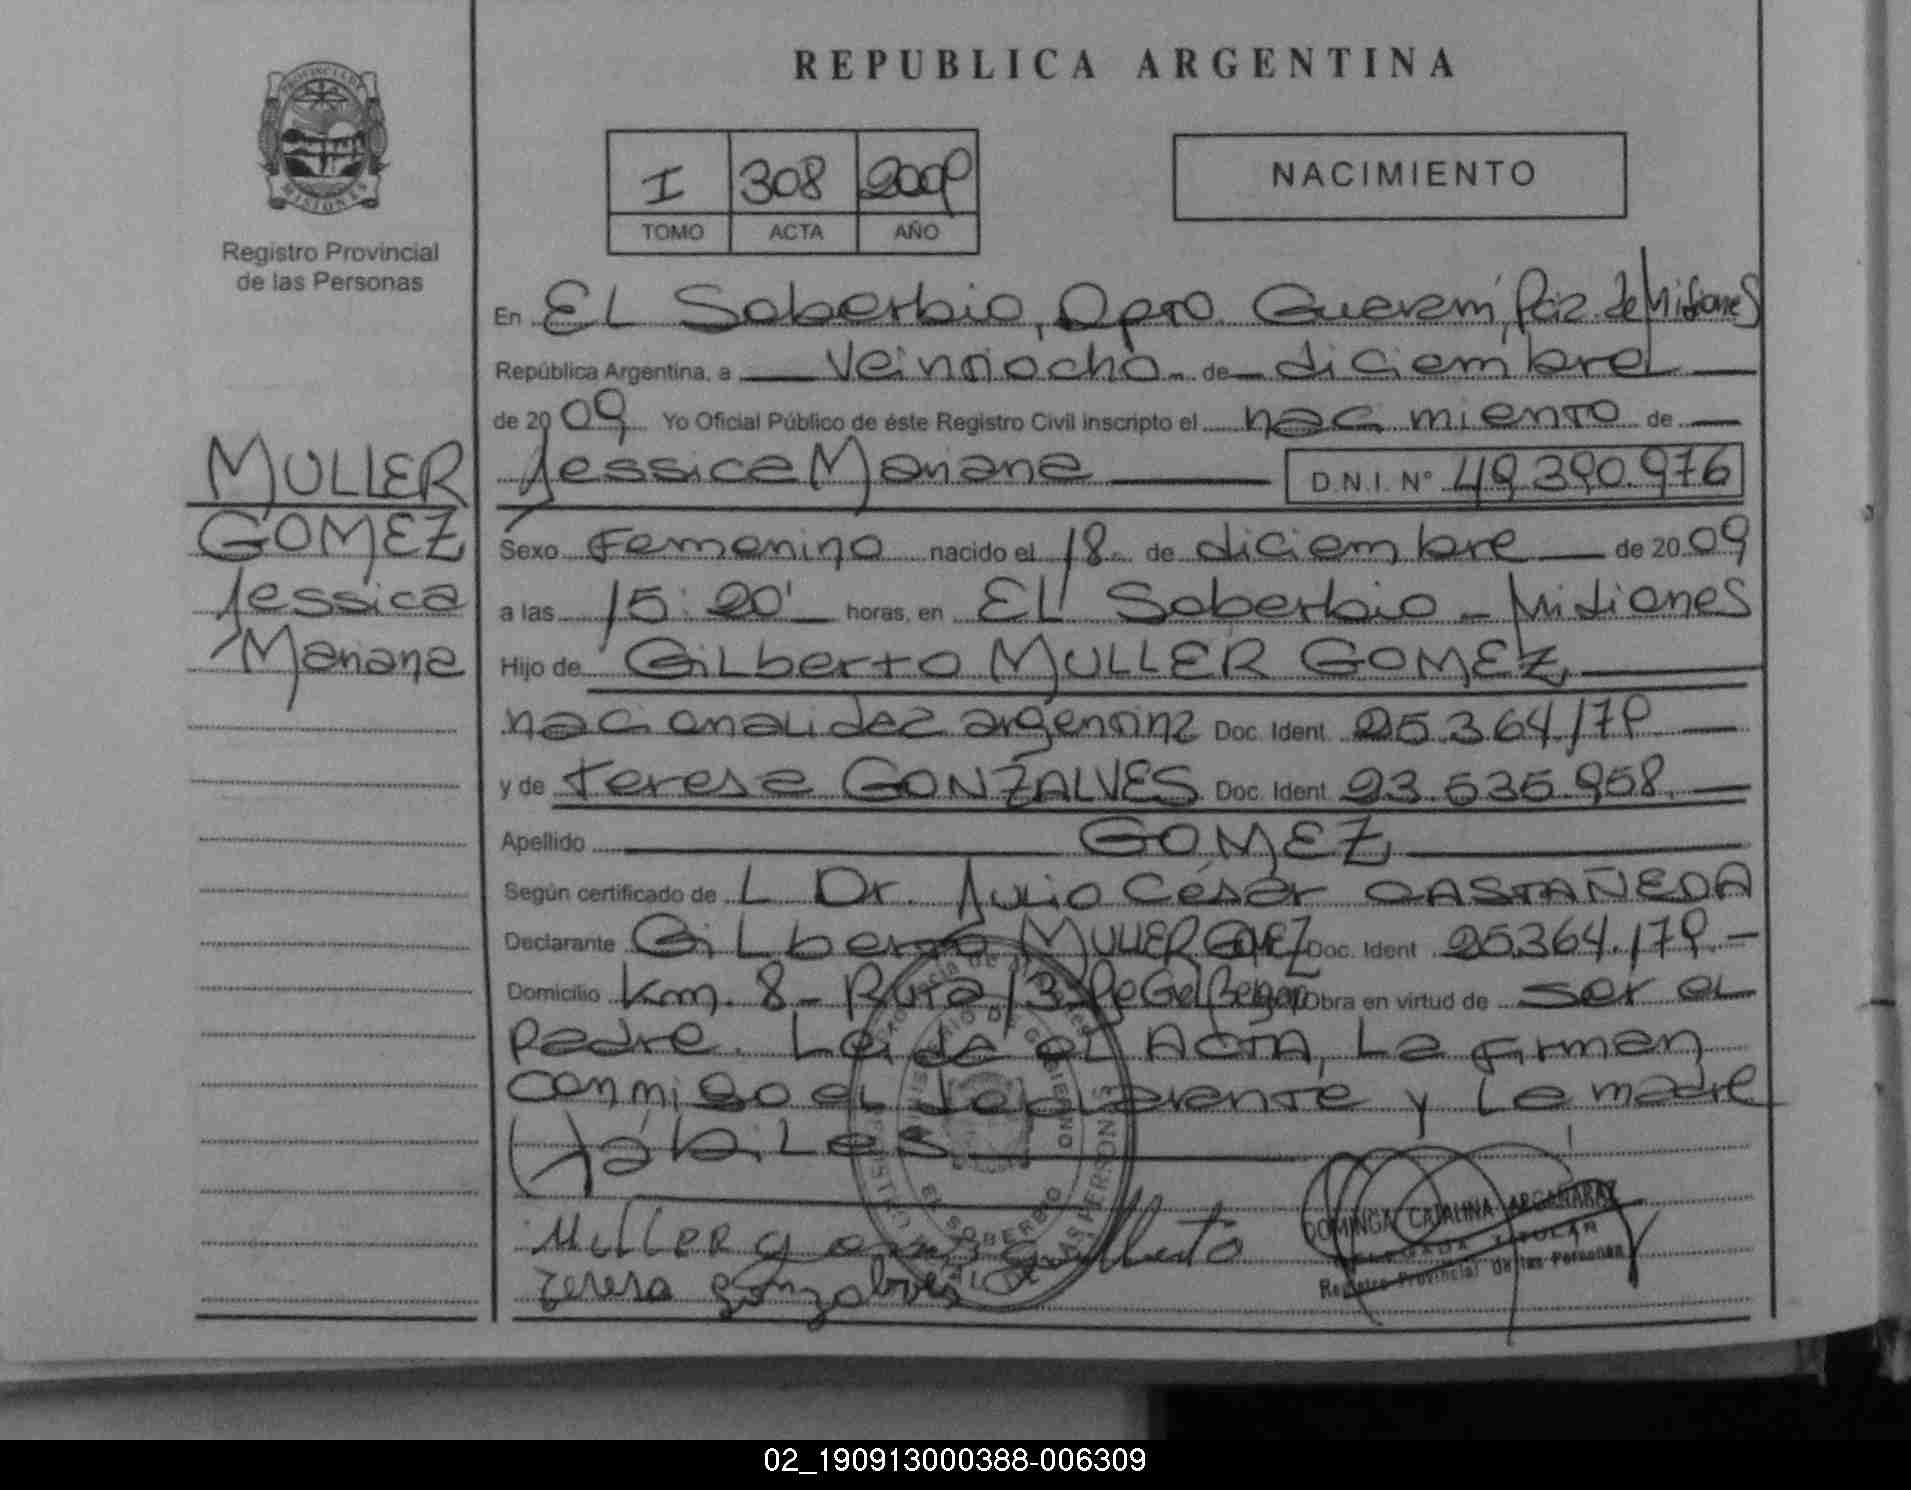 REPUBLICA ARGENTINA
PROVINCIA DE
MISIONES
Registro Provincial
de las Personas
I 308 2009
TOMO ACTA AÑO
NACIMIENTO
En EL Soberbio, Dpto. Guarani, Pcia. de Misiones
República Argentina, a veintiocho de diciembre
de 2009 Yo Oficial Público de éste Registro Civil inscripto el nacimiento de
Jessica Mariana D.N.I. Nº 49.390.976
MULLER
GOMEZ
Jessica
Mariana
Sexo Femenino nacido el 18 de diciembre de 2009
a las 15:20' horas, en EL Soberbio - Misiones
Hijo de GiLberto MULLER GOMEZ
nacionalidad argentina Doc. Ident. 25.364.179
y de Teresa GONZALVES Doc. Ident. 93.535.958
Apellido GOMEZ
Según certificado de L Dr. Julio César CASTAÑEDA
Declarante GiLberto MULLER GOMEZ Doc. Ident 25.364.179.-
Domicilio Km. 8 - Ruta 13 obra en virtud de ser el
padre. Leida el ACTA, La firman
conmigo el declarante y la madre
Hábiles
Muller Gomez Gilberto
Teresa gonzalves
DOMINGA CATALINA ARGAÑARAZ
DELEGADA TITULAR
Registro Provincial de las Personas
EL SOBERBIO
02_190913000388-006309